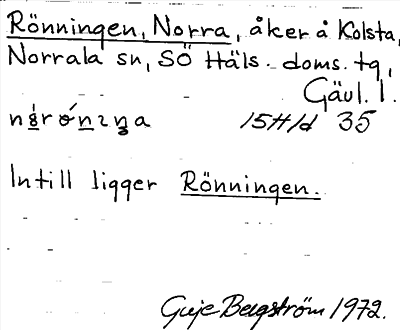 Rönningen, Norra, åker å Kolsta,
Norrala sn, SÖ Häls. doms. tg,
Gävl. l.
15H1d 35
Intill ligger Rönningen.
Bergström 1972.